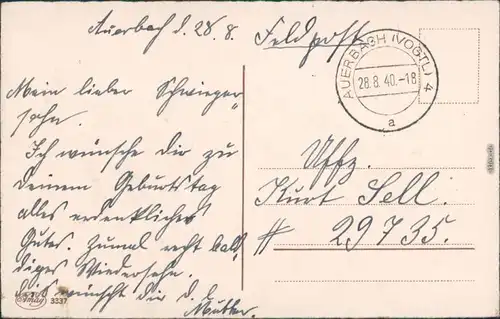 Auerbach d. 28. 8.
Mein lieber Schwieger„
sohn.
Ich wünsche dir zu
deinem Geburtstag
alles erdenkliches
Gutes. Zumal recht bal„
diges Wiedersehn.
wünscht dir d.
Mutter.
3337
Feldpost
AUERBACH (VOGTL) 4
28.8.40.-18
a
Uffz.
Kurt Sell.
# 29735.